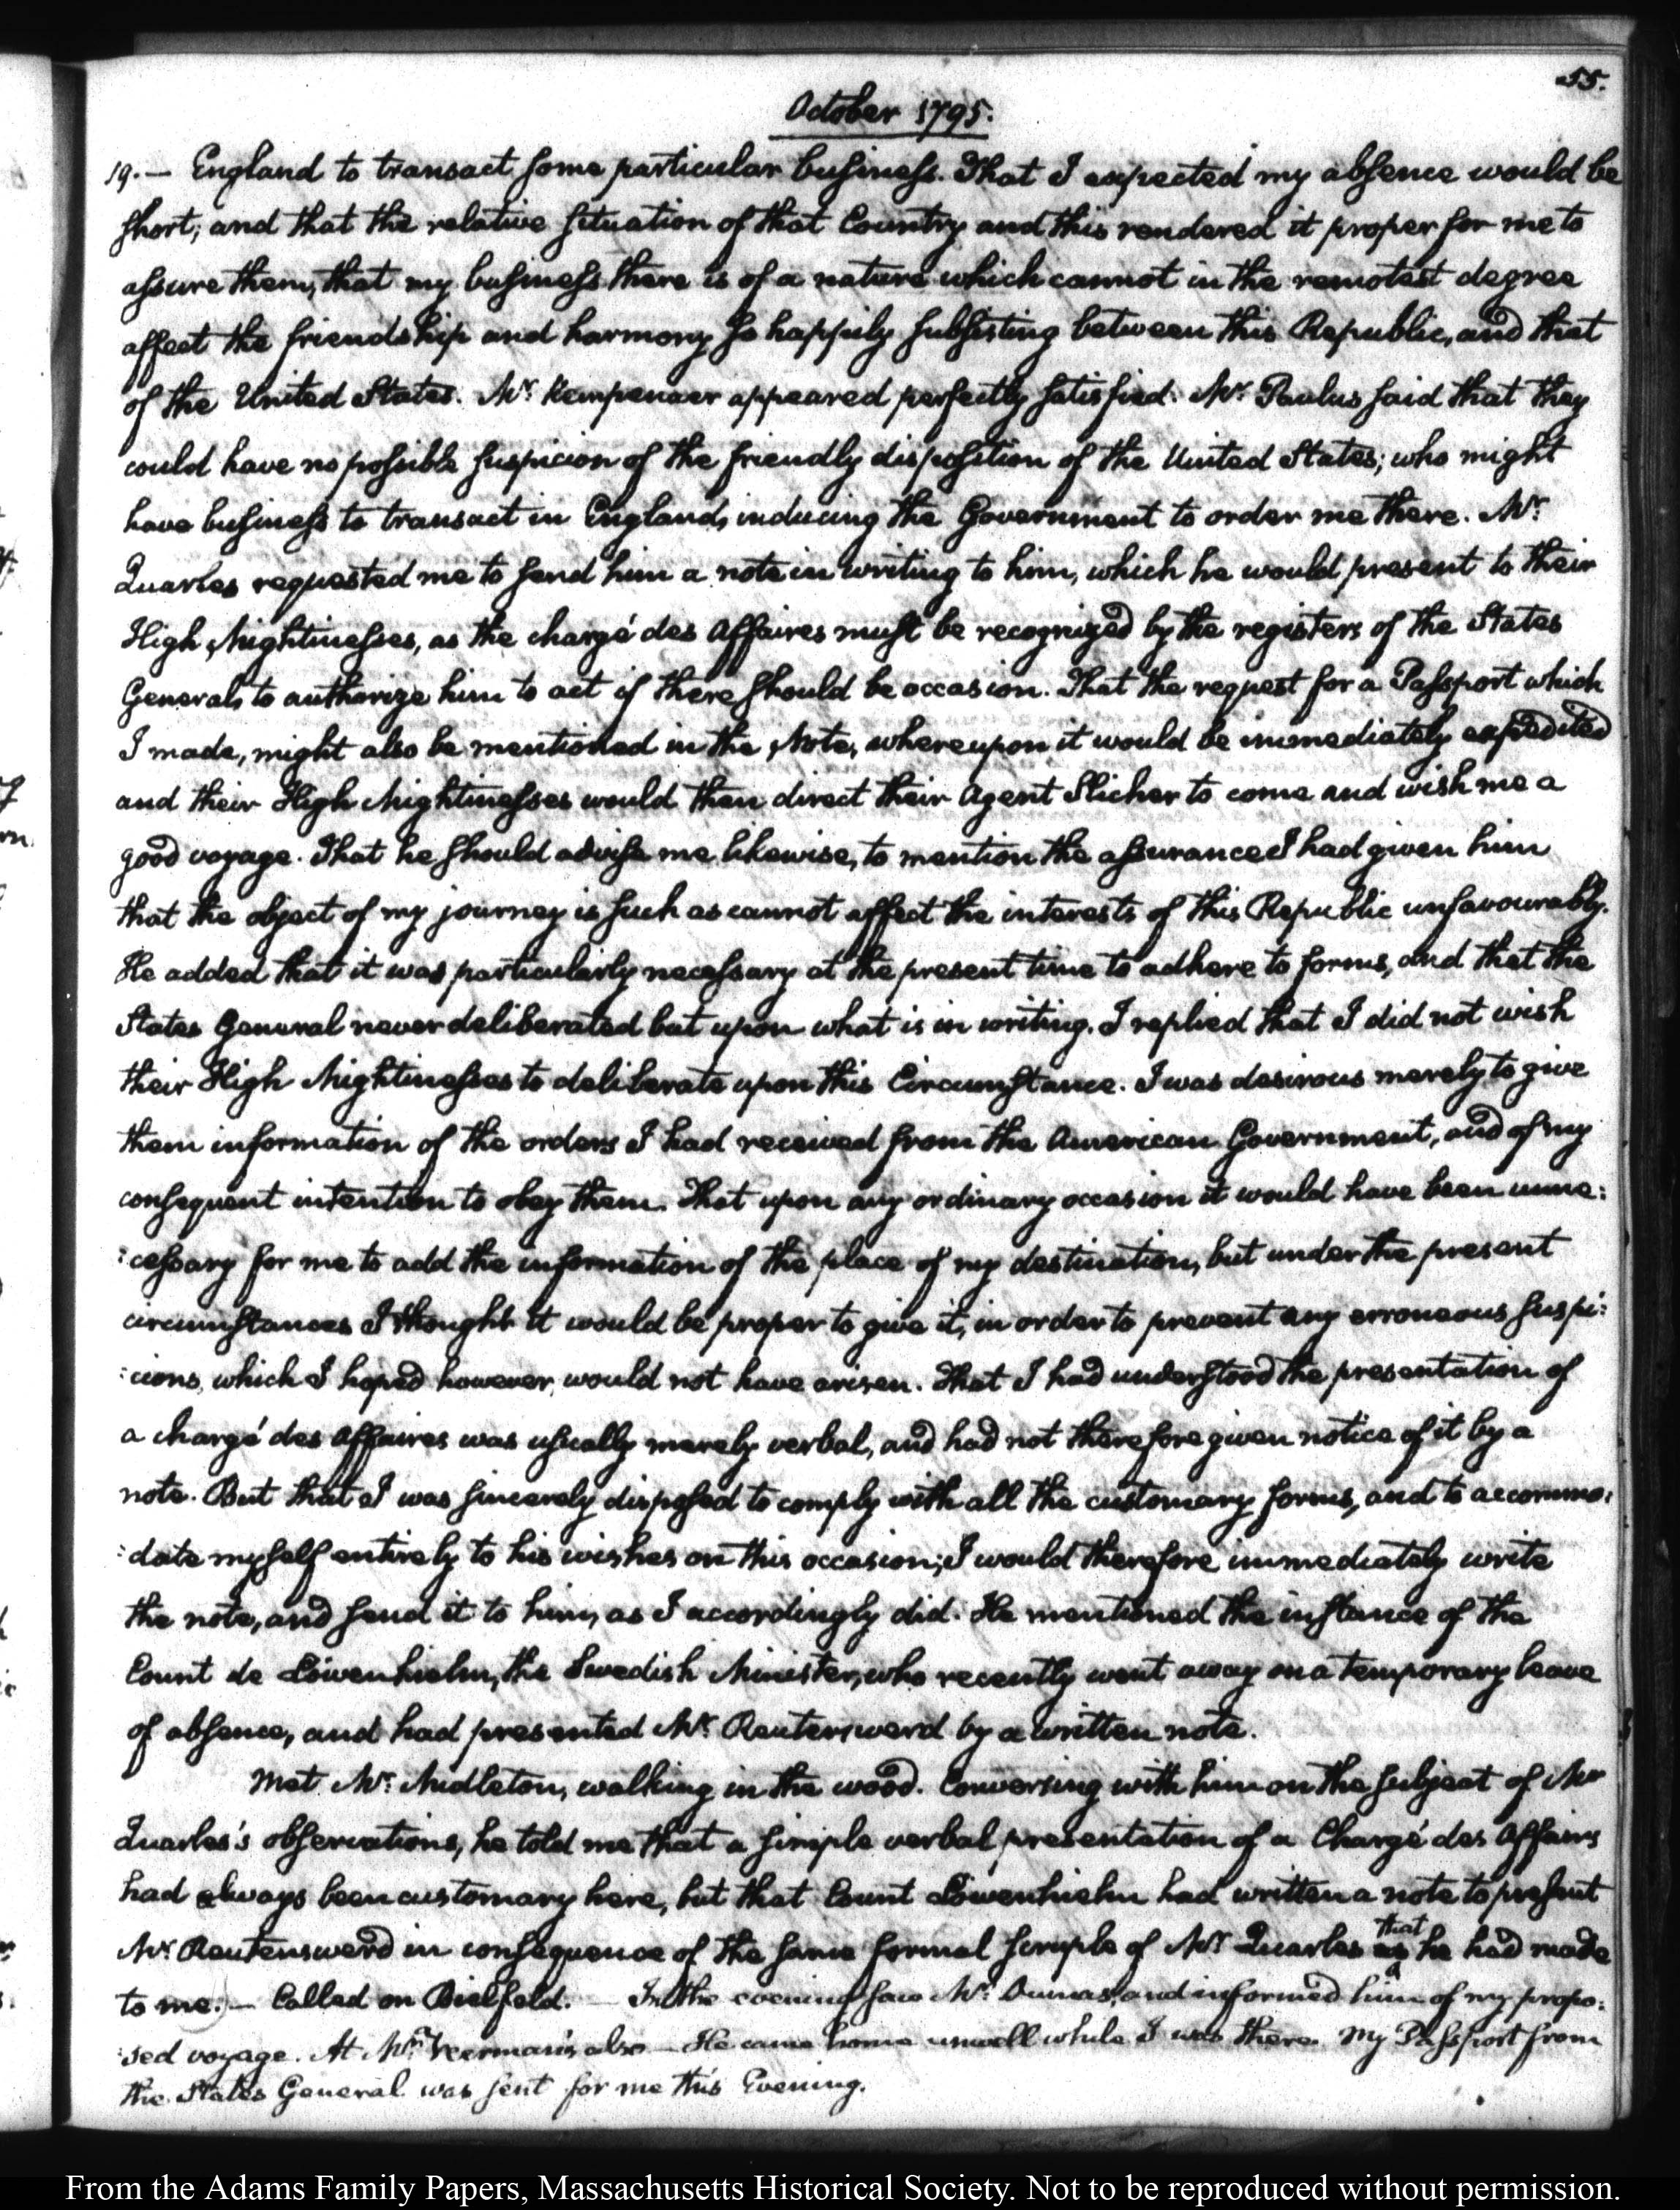 55.
October 1795.
19.— England to transact some particular business. That I expected my absence would be
short; and that the relative situation of that Country and this rendered it proper for me to
assure them, that my business there is of a nature which cannot in the remotest degree
affect the friendship and harmony so happily subsisting between this Republic, and that
of the United States. Mr. Kempenaer appeared perfectly satisfied. Mr. Paulus said that they
could have no possible suspicion of the friendly disposition of the United States; who might
have business to transact in England, inducing the Government to order me there. Mr.
Quarles requested me to send him a note in writing to him, which he would present to their
High Mightinesses, as the chargé des affaires must be recognized by the registers of the States
General, to authorize him to act if there should be occasion. That the request for a Passport which
I made, might also be mentioned in the Note, whereupon it would be immediately expedited
and their High Mightinesses would then direct their Agent Slicher to come and wish me a
good voyage. That he should advise me likewise, to mention the assurance I had given him
that the object of my journey is such as cannot affect the interests of this Republic unfavourably.
He added that it was particularly necessary at the present time to adhere to forms, and that the
States General never deliberated but upon what is in writing. I replied that I did not wish
their High Mightinesses to deliberate upon this Circumstance. I was desirous merely to give
them information of the orders I had received from the American Government, and of my
consequent intention to obey them. That upon any ordinary occasion it would have been unne:
:cessary for me to add the information of the place of my destination, but under the present
circumstances I thought it would be proper to give it, in order to prevent any erroneous suspi:
:cions, which I hoped however, would not have arisen. That I had understood the presentation of
a chargé des affaires was usually merely verbal, and had not therefore given notice of it by a
note. But that I was sincerely disposed to comply with all the customary forms, and to accommo:
:date myself entirely to his wishes on this occasion; I would therefore immediately write
the note, and send it to him, as I accordingly did. He mentioned the instance of the
Count de Löwenhielm, the Swedish Minister, who recently went away on a temporary leave
of absence, and had presented Mr. Reutersward by a written note.
Met Mr. Midleton, walking in the wood. Conversing with him on the subject of Mr
Quarles's observations, he told me that a simple verbal presentation of a Chargé des Affairs
had always been customary here, but that Count Löwenhielm had written a note to present
Mr. Reutersward in consequence of the same formal scruple of Mr Quarles as that he had made
to me.— Called on Bielfeld. — In the evening saw Mr. Dumas, and informed him of my propo:
:sed voyage. At Mr. Veerman's also — He came home unwell while I was there. My Passport from
the States General was sent for me this Evening.
From the Adams Family Papers, Massachusetts Historical Society. Not to be reproduced without permission.